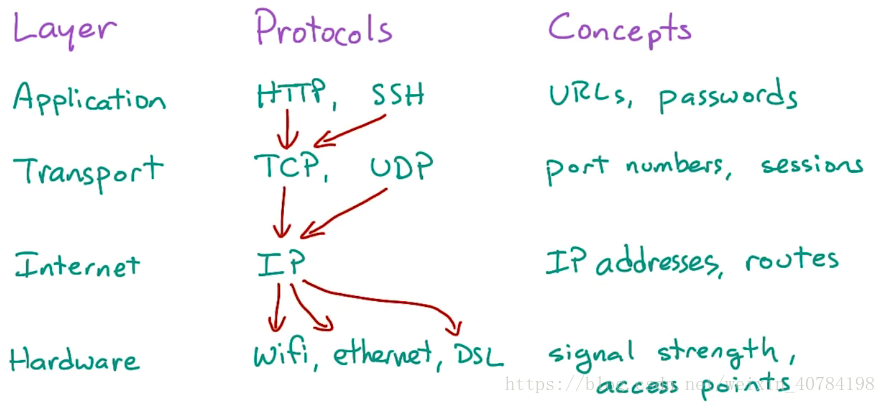 Layer Protocols Concepts
Application HTTP, SSH URLs, passwords
Transport TCP, UDP port numbers, sessions
Internet IP IP addresses, routes
Hardware Wifi, ethernet, DSL signal strength,
access points
https://blog.csdn.net/weixin_40784198